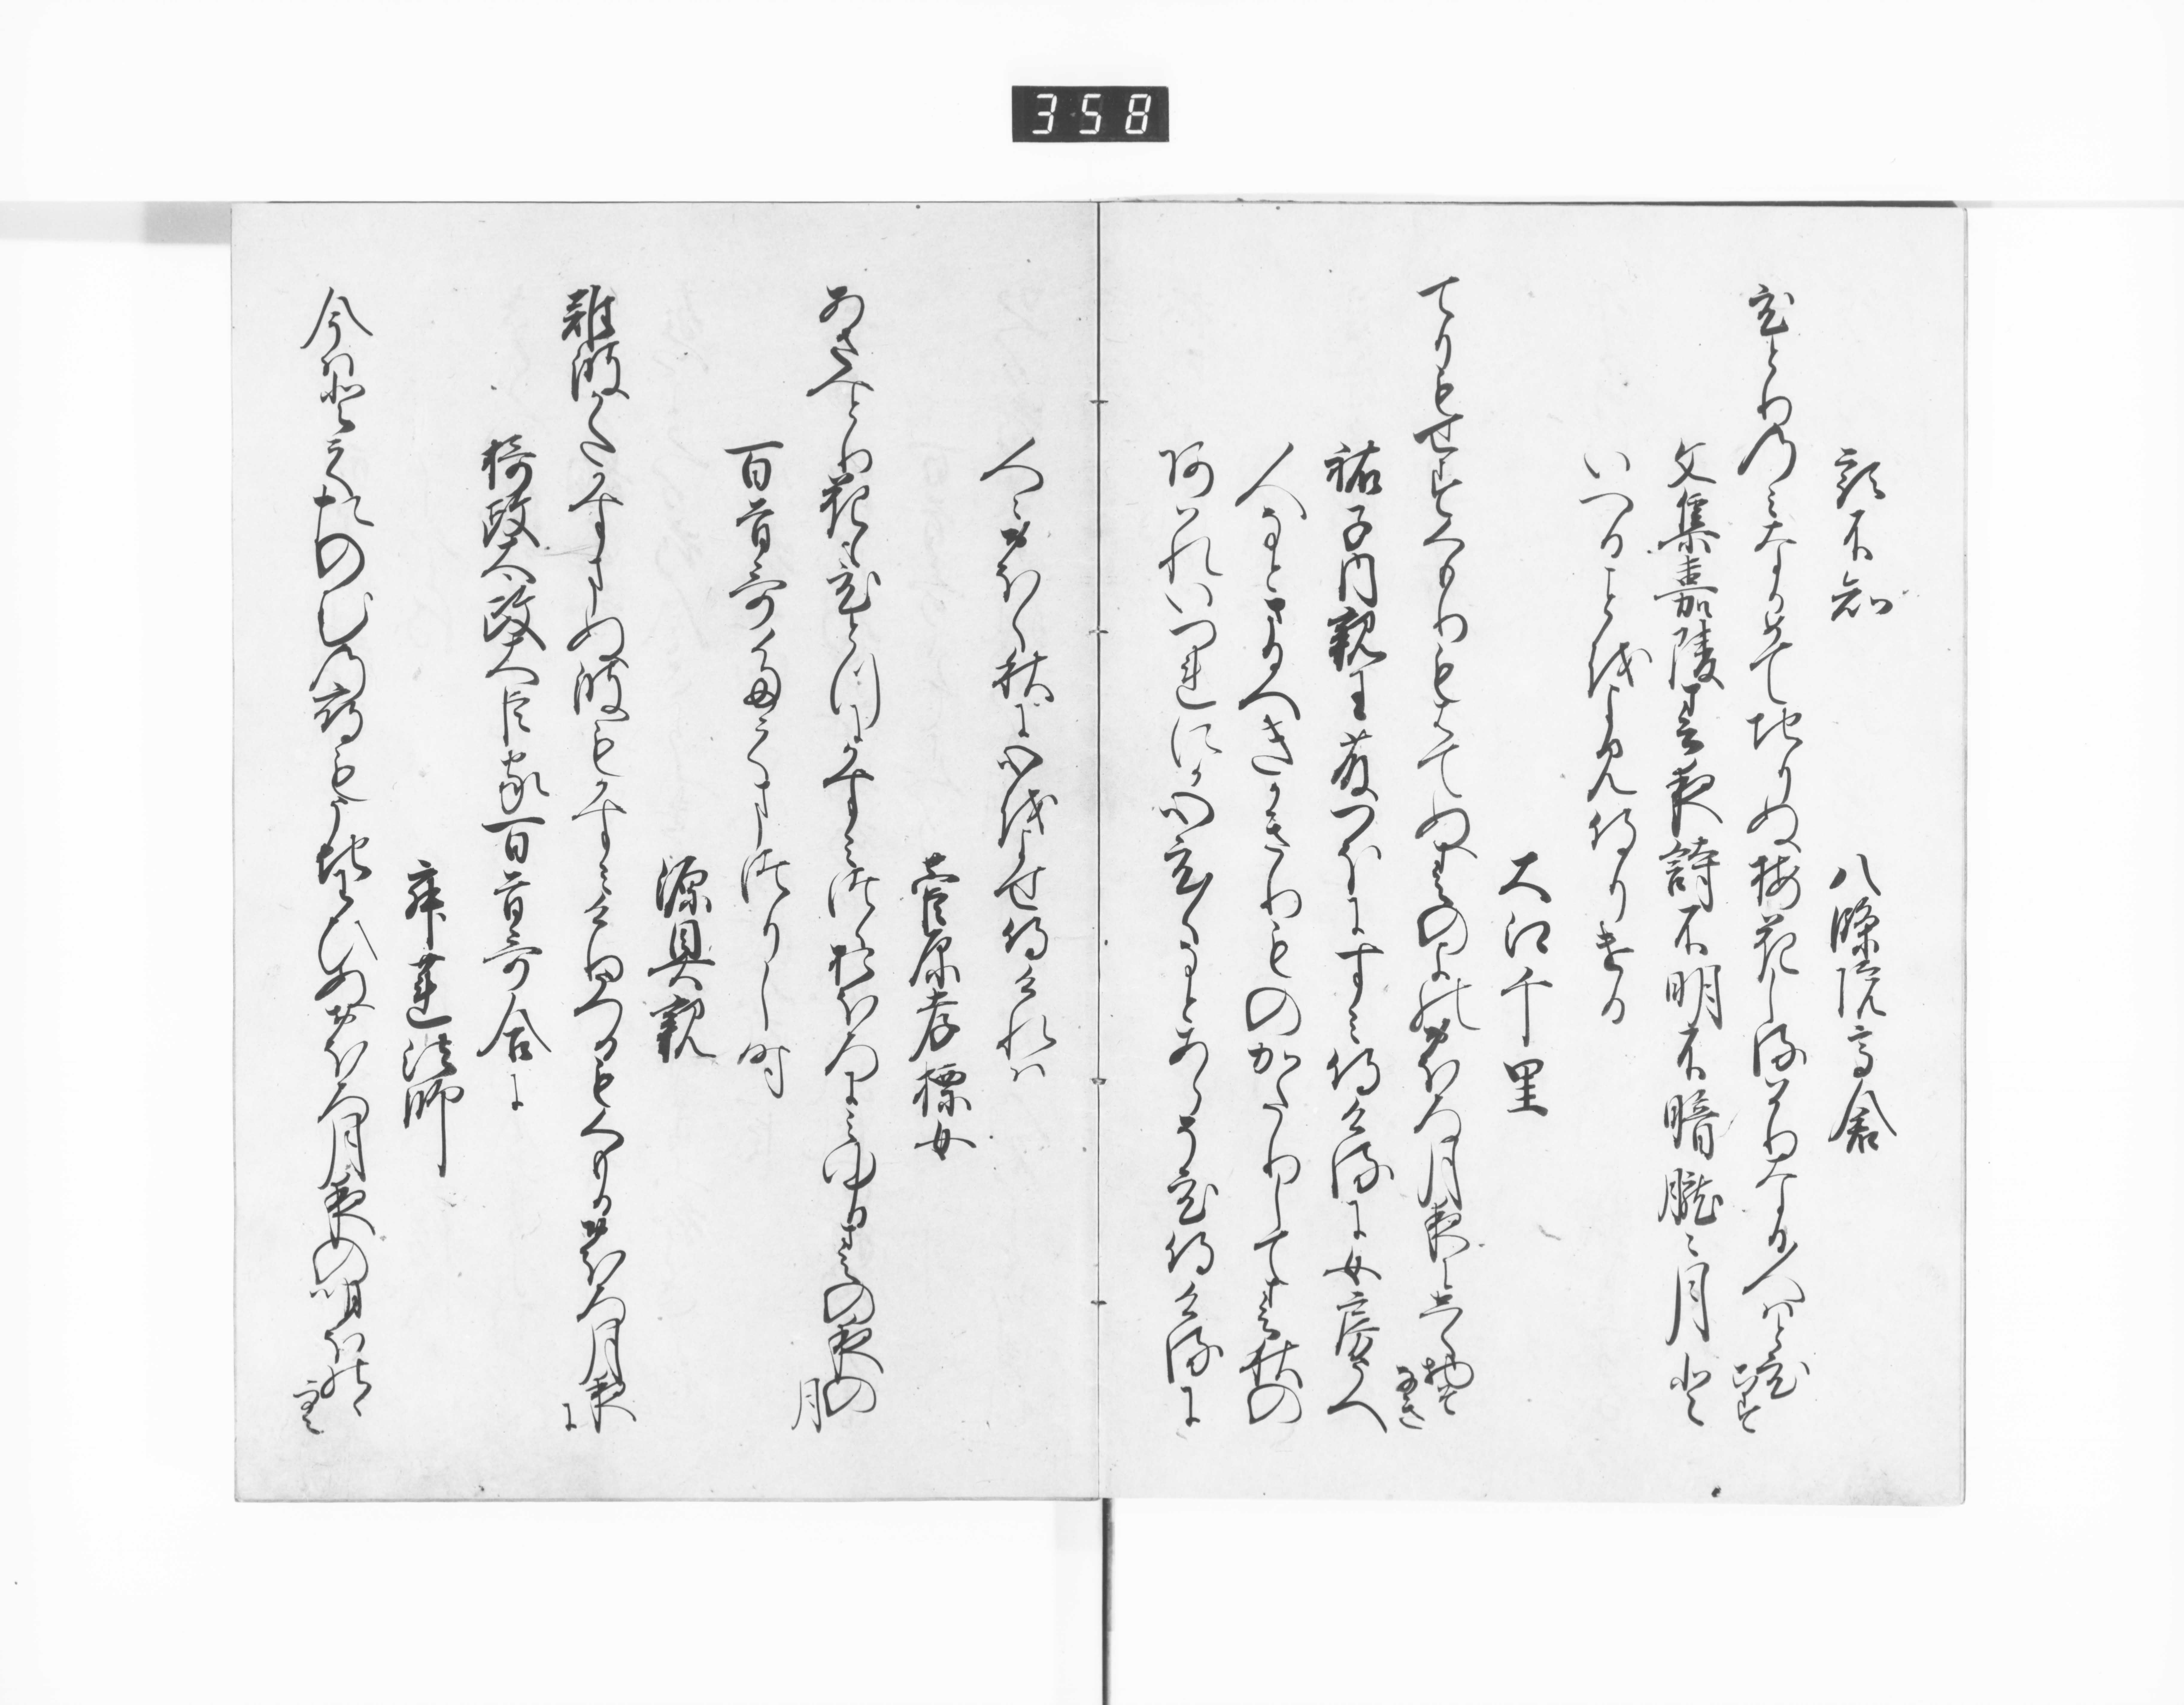 358
題不知
八条院高倉
ひとりのみなかめて地りぬ梅花しるはかりなる人はとひこす
文集嘉陵春夜詩不明不暗朧〻月と
いつることをよみ侍りける
大江千里
てりもせすくもりもはてぬ春のよのおほろ月夜にしく物そなき
祐子内親王藤つほにすみ侍ける尓女房うへ
人なとさるへきかきりものかたりして春秋の
阿はれいつれにか心ひくなとあらそひ侍ける尓
人〻おほく秋尓心をよせ侍けれは
菅原孝標女
あさみとり花もひとつ尓かすみつつおほろ尓みゆる春の夜の月
百首哥たてまつりし時
源具親
難波かたかすまぬ浪もかすみけりうつるもくもるおほろ月夜尓
摂政太政大臣家百首哥合尓
寂蓮法師
今はとてたのむの鴈もうち王ひぬおほろ月夜の明ほの〻空